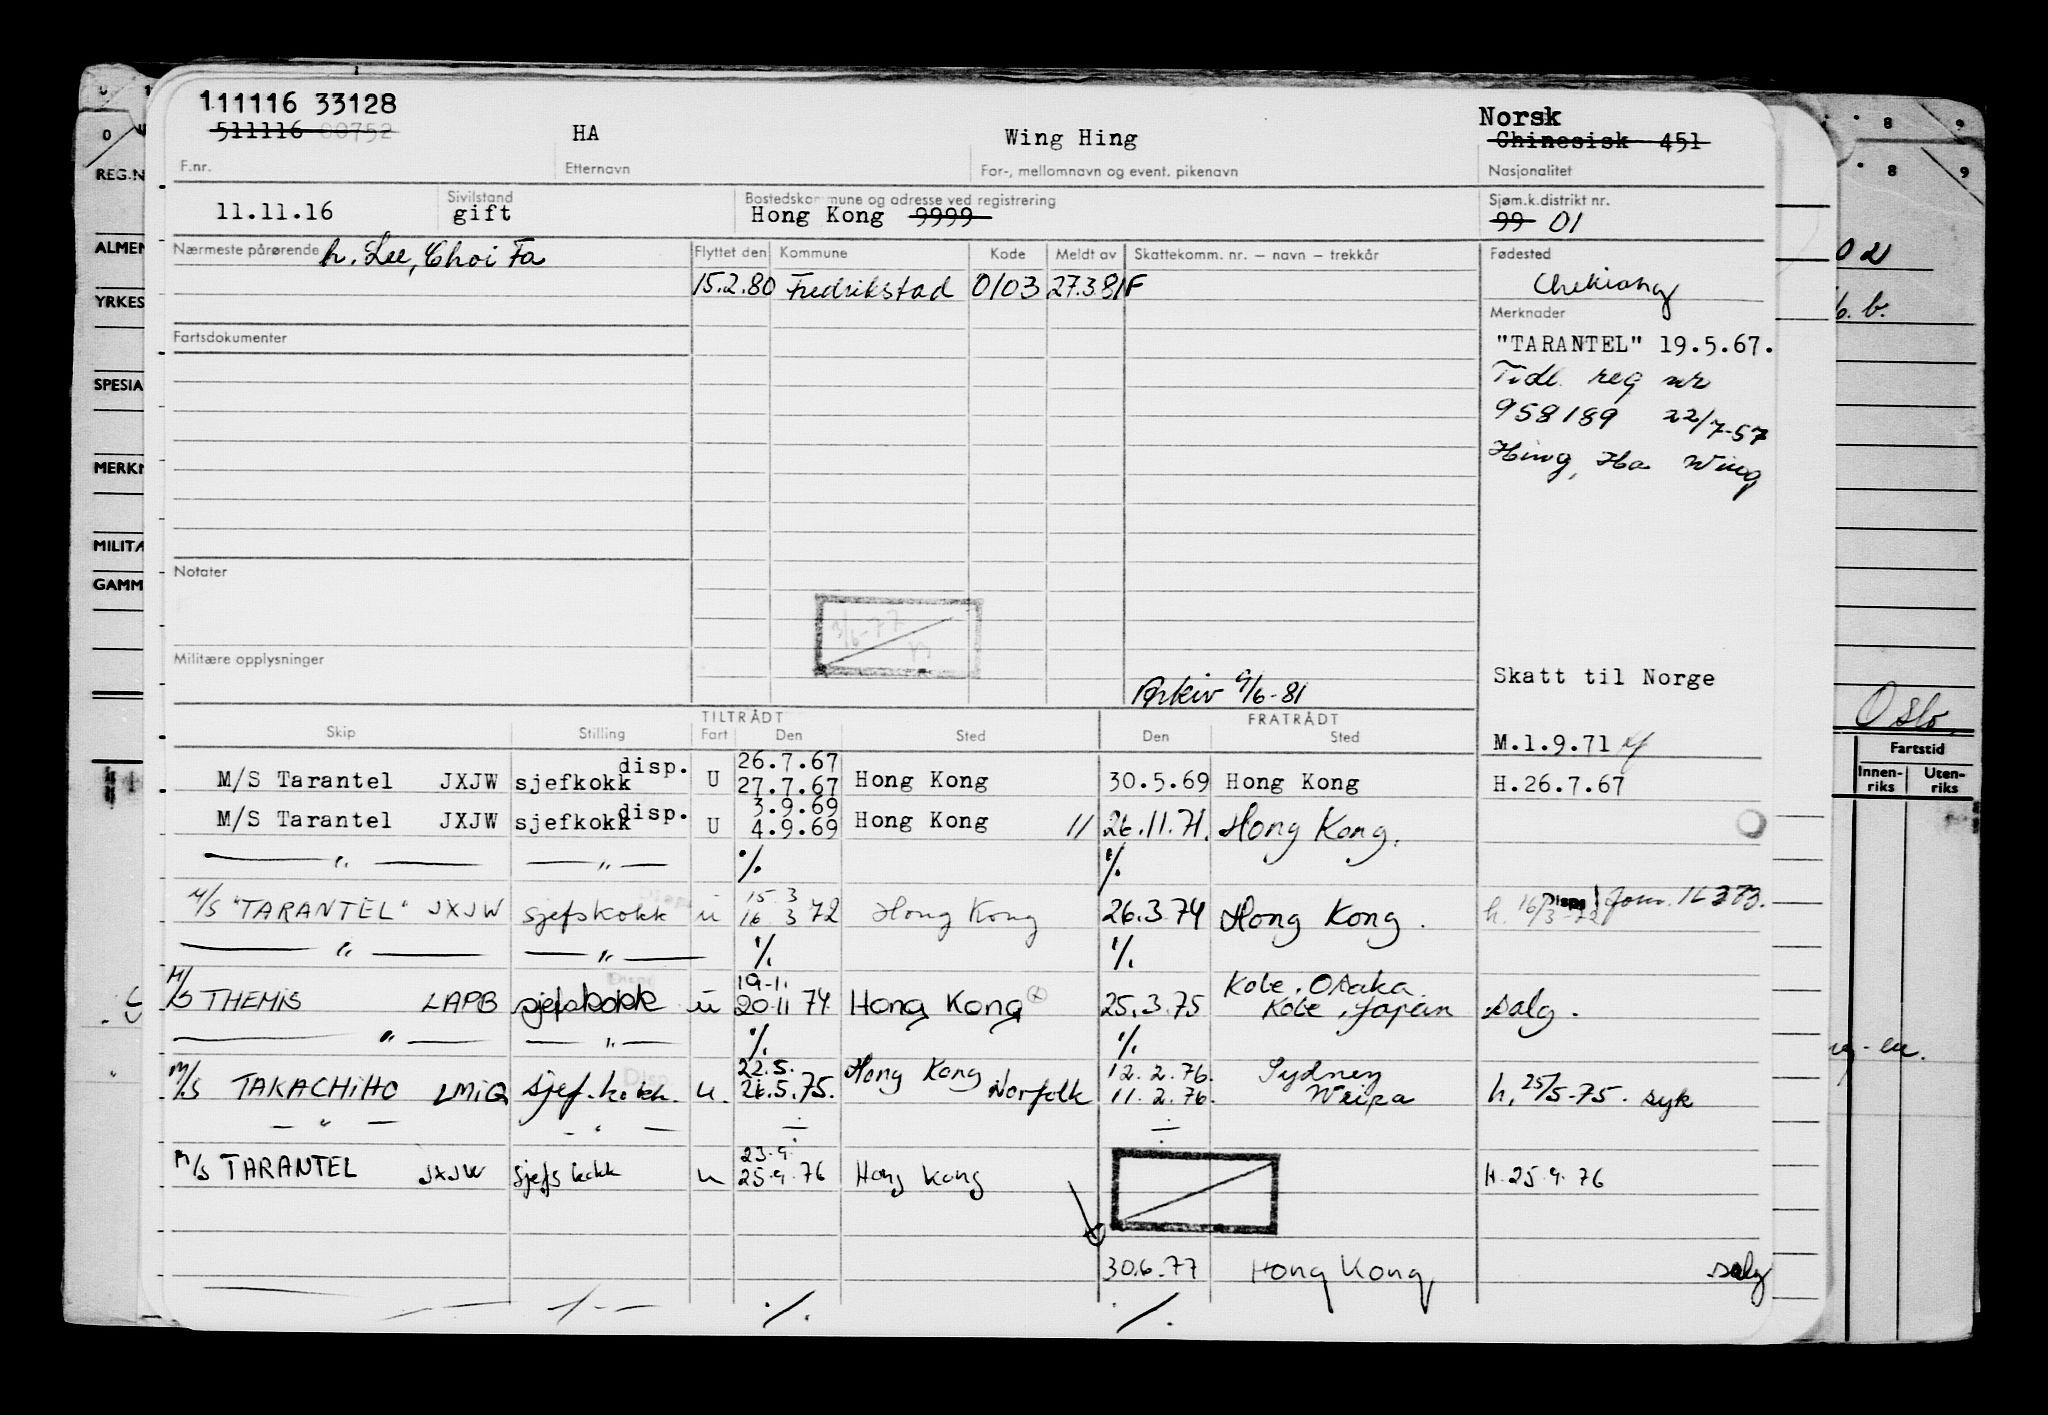 111116 33128
511116 00752 HA Wing Hing Norsk
Chinesisk 451
F.nr. Etternavn For-, mellomnavn og event. pikenavn Nasjonalitet
11.11.16 Sivilstand gift Bostedskommune og adresse ved registrering Hong Kong 9999 Sjøm.k.distrikt nr. 99 01
Nærmeste pårørende h. Lee, Choi Fa Flyttet den Kommune Kode Meldt av Skattekomm. nr. – navn – trekkår Fødested
15.2.80 Fredrikstad 0103 27.3.81 F Chekiang
Merknader
Fartsdokumenter "TARANTEL" 19.5.67.
Tidl. reg nr
958189 22/7-57
Hing, Ha Wing
Notater
Militære opplysninger
Skatt til Norge
Arkiv 9/6-81
TILTRÅDT FRATRÅDT
Skip Stilling Fart Den Sted Den Sted
M.1.9.71
M/S Tarantel JXJW sjefkokk disp. U 26.7.67 27.7.67 Hong Kong 30.5.69 Hong Kong H.26.7.67
M/S Tarantel JXJW sjefkokk disp. U 3.9.69 4.9.69 Hong Kong // 26.11.71. Hong Kong.
— " — — " — ·/. ·/.
M/S "TARANTEL" JXJW sjefskokk u 15.3 16.3 72 Hong Kong 26.3.74 Hong Kong. h. 16/3-72 Disp
— " — — " — ·/. ·/.
M/S THEMIS LAPB sjefskokk u 19-11 20-11 74 Hong Kong 25.3.75 Kobe, Osaka Kobe, Japan salg.
— " — — " — ·/. ·/.
M/S TAKACHIHO LMIQ sjef.kokk. u. 22.5. 26.5.75. Hong Kong Norfolk 12.2.76. 11.2.76. Sydney Weipa h. 25/5-75. syk
— " — — " — ÷ ÷
M/S TARANTEL JXJW sjefskokk u 23.9. 25.9.76 Hong Kong H.25.9.76
30.6.77 Hong Kong, salg
·/. ·/.
REG.N
ALMEN
YRKES
SPESIA
MERKN
MILITA
GAMM
8 9
8 9
02
b.
Oslo,
Fartstid
Innenriks Utenriks